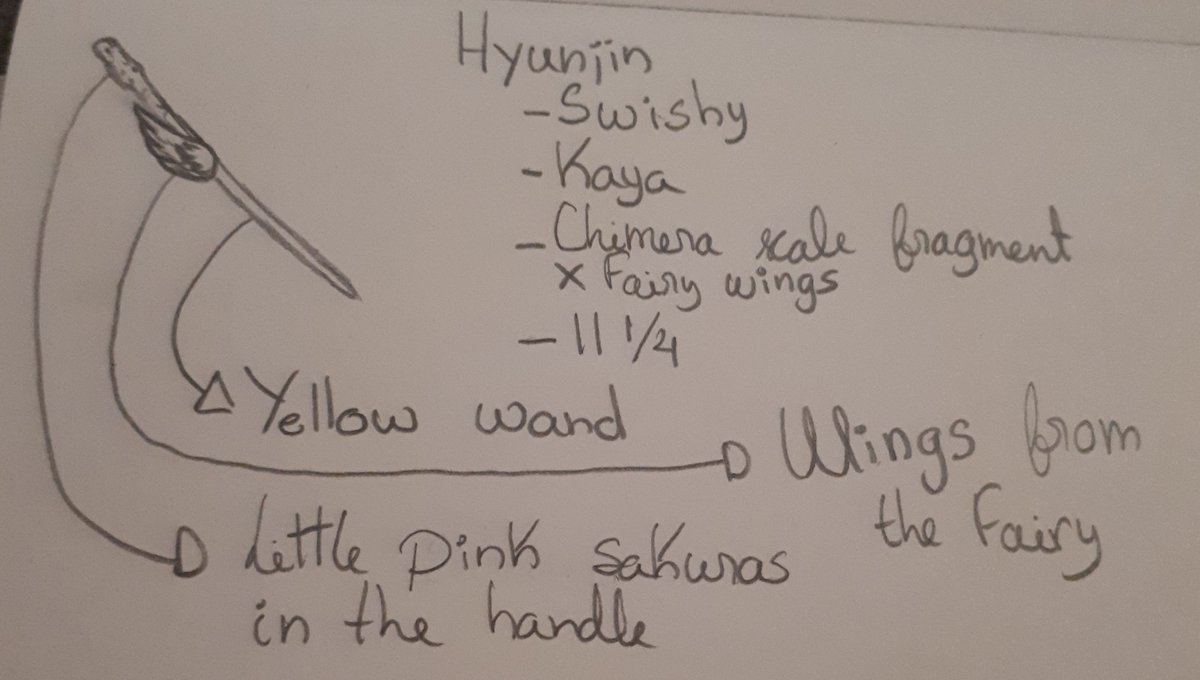 Hyunjin
- Swishy
- Kaya
- Chimera scale fragment
x Fairy wings
- 11 1/4
Yellow wand
Wings from
the Fairy
Little pink sakuras
in the handle